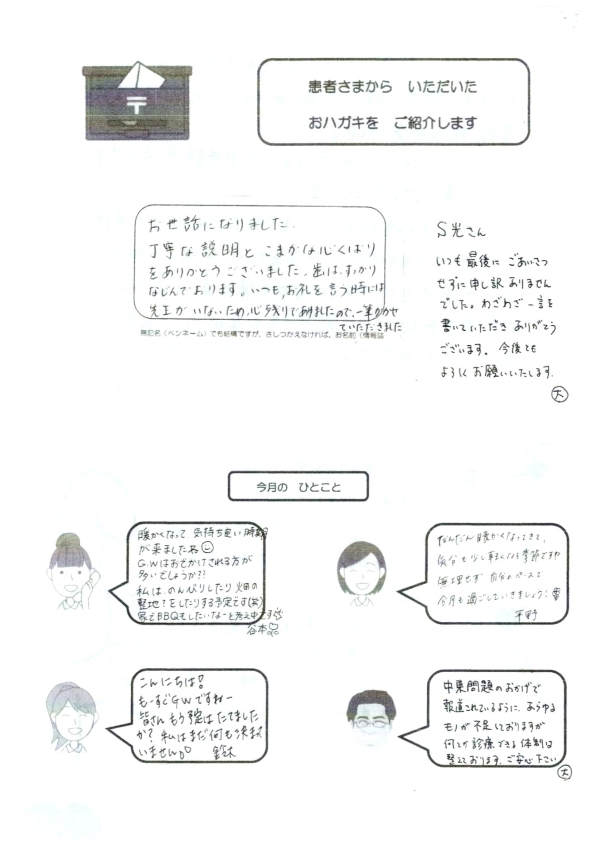 〒
患者さまから いただいた
おハガキを ご紹介します
お世話になりました。
丁寧な説明と こまかな心くばり
をありがとうございました。歯は、すっかり
なじんでおります。いつも、お礼を言う時には
先生がいないため、心残りでありましたので、一筆かかせ
ていただきました
無記名（ペンネーム）でも結構ですが、さしつかえなければ、お名前（情報誌
S光さん
いつも最後に ごあいさつ
せずに申し訳ありません
でした。わざわざ一言を
書いていただき ありがとう
ございます。今後とも
よろしく お願いいたします。
大
今月の ひとこと
暖かくなって 気持ち良い時期
が来ましたね
G.Wはおでかけされる方が
多いでしょうか??
私は、のんびりしたり 畑の
整地?をしたりする予定です(笑)
家でBBQもしたいなーと考え中です
谷本
だんだん暖かくなってきて、
気分も少し軽くなる季節ですね
無理せず 自分のペースで
今月も過ごしていきましょう!
平野
こんにちは!
もーすぐGWですねー
皆さん もう予定は たてました
か? 私はまだ何も決まって
いません。 鈴木
中東問題のおかげで
報道されているように、あらゆる
モノが不足しておりますが
何とか診療できる体制は
整えております。ご安心下さい
大